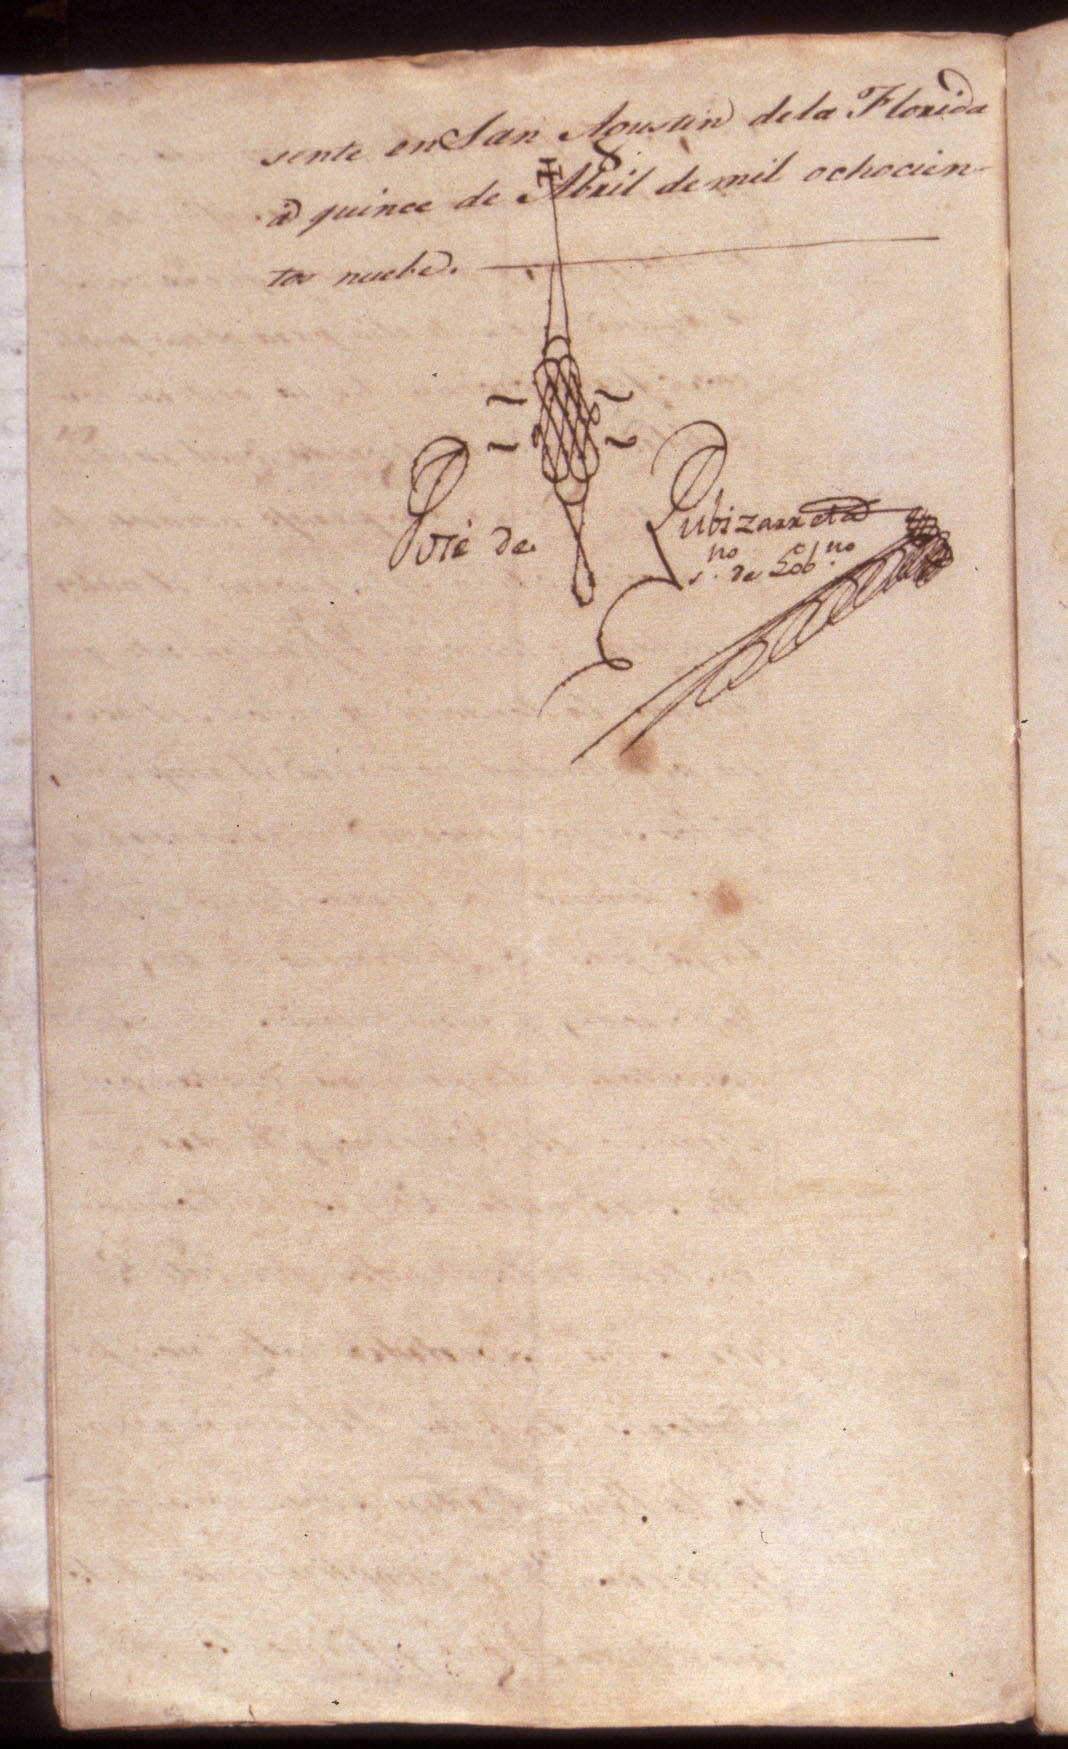 sente en San Agustin de la Florida
à quince de Abril de mil ochocien-
tos nuebe.
José de Zubizarreta
s.no de Gob.no